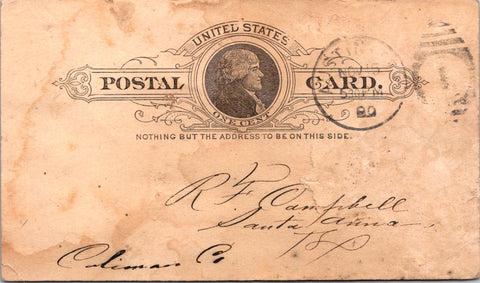 UNITED STATES
POSTAL CARD.
ONE CENT
NOTHING BUT THE ADDRESS TO BE ON THIS SIDE.
90
R F Campbell
Santa Anna
Tx
Coleman Co